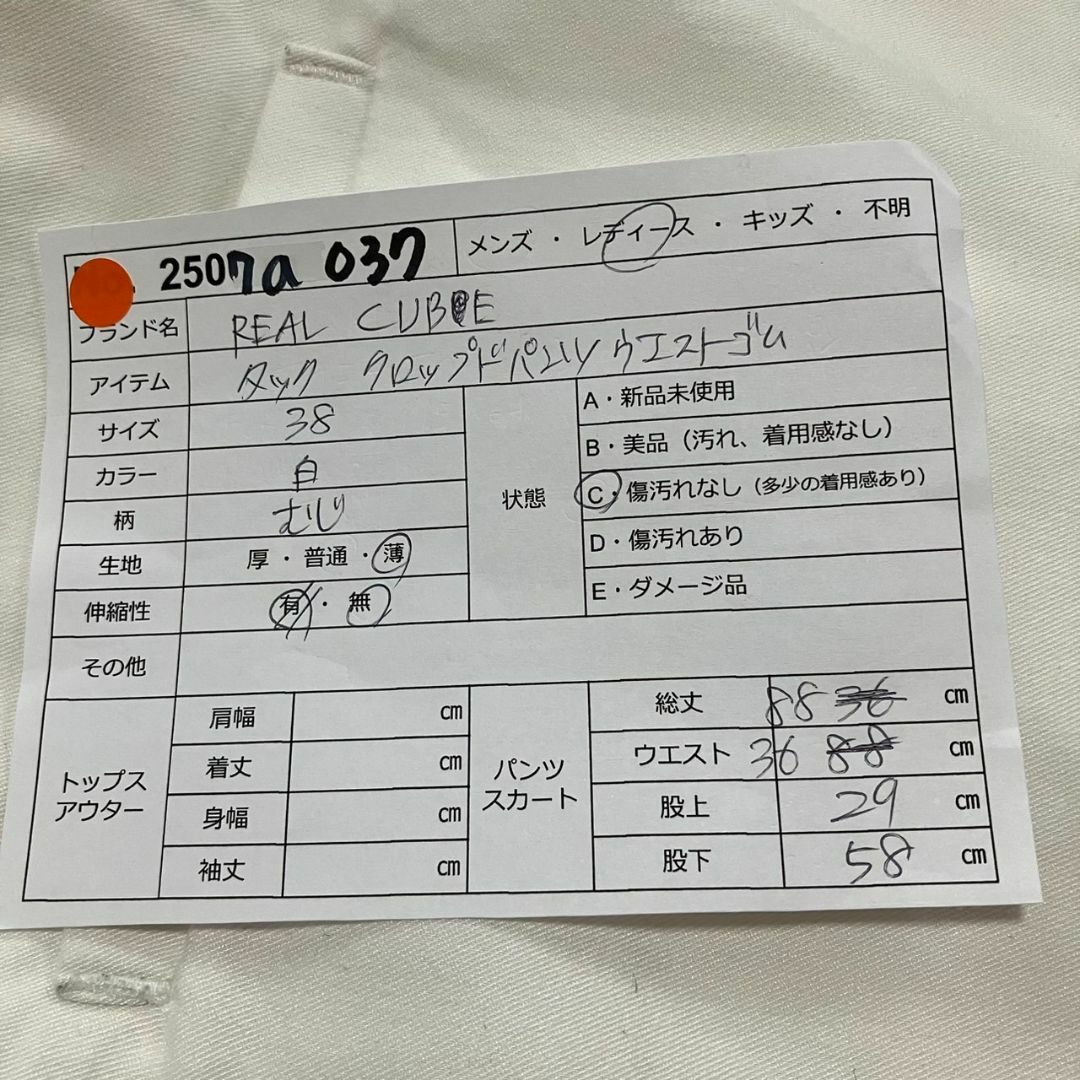 2507a 037 メンズ ・ レディース ・ キッズ ・ 不明
ブランド名 REAL CUBE
アイテム タック クロップドパンツ ウエストゴム
サイズ 38
カラー 白
柄 むじ
生地 厚・普通・薄
伸縮性 有・無
状態
A・新品未使用
B・美品（汚れ、着用感なし）
C・傷汚れなし（多少の着用感あり）
D・傷汚れあり
E・ダメージ品
その他
トップス
アウター
肩幅 cm
着丈 cm
身幅 cm
袖丈 cm
パンツ
スカート
総丈 88 36 cm
ウエスト 36 88 cm
股上 29 cm
股下 58 cm